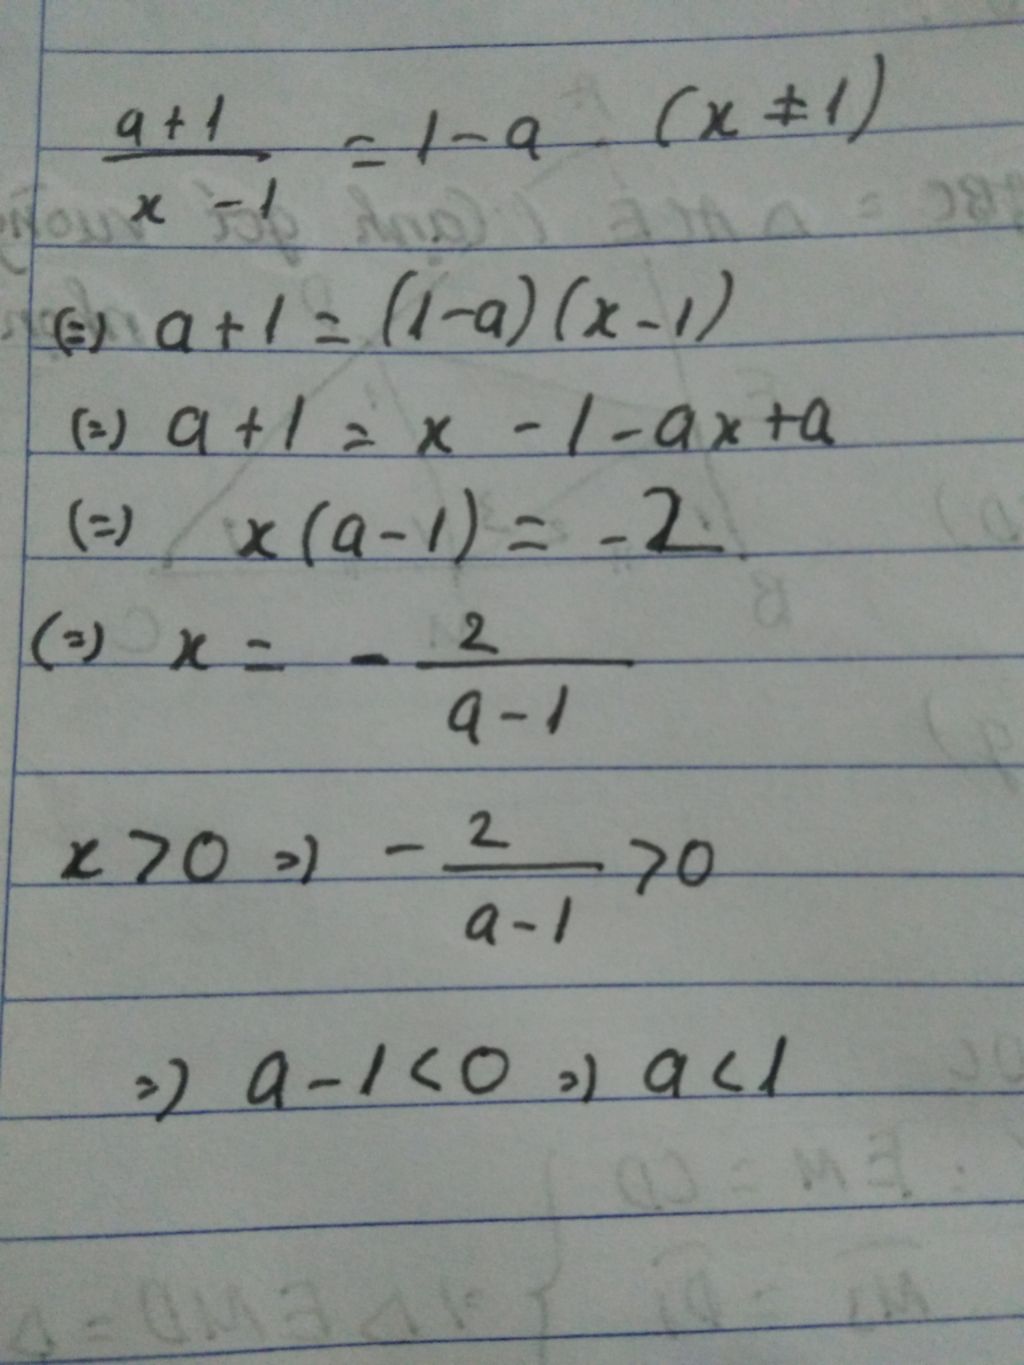 a+1/x-1 = 1-a (x ≠ 1)
(=) a+1 = (1-a)(x-1)
(=) a+1 = x -1-ax+a
(=) x(a-1) = -2
(=) x = - 2/a-1
x>0 => - 2/a-1 >0
=> a-1<0 => a<1